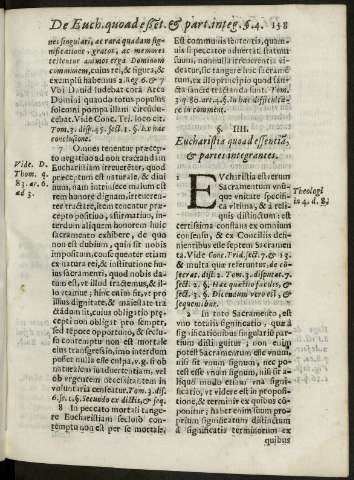 De Euch. quoad essēt. & part. integ. §. 4. 158
nei singulari, ac rara quadam sig-
nificatione, gratos, ac memores
testentur animos erga Dominum
communem, cuius rei, & figura, &
exemplū habemus 2. Reg. 6. & 7
Vbi Dauid iudebat corā Arca
Domini quando totus populus
solemni pompa illum circūdu-
cebat. Vide Conc. Tri. loco cit.
Tom. 3. disp. 45. sect. 1. §. Ex hac
conclusione.
7 Omnes tenentur præcep-
to negatiuo ad non tractandum
Eucharistiam irreuerēter, quod
præceptum est iure naturæ, & di-
uinum, nam intrinsece malum est
rem honore dignam irreuerēn-
ter tractare, item tenentur præ-
cepto positiuo, affirmatiuo, in-
terdum aliquem honorem huic
sacramento exhibere, de quo
non est dubium, quin sit nobis
impositum, consequenter etiam
ex natura rei, & institutione hu-
ius sacramenti, quod nobis da-
tum est, vt illud tractemus, & il-
lo vtamur; hinc enim fit, vt pro
illius dignitate, & maiestate tra-
ctādum sit, cuius obligatio præ-
cepti non obligat pro semper,
sed tēpore opportuno, & secluso
contemptu non est mortale
eius transgressio, imo interdum
posset nulla esse culpa, v. g. si ob
inaduertentiam, vel
ob vrgentem necessitatem in
voluntaria censeatur. Tom. 3. dis.
6. se. 1. §. Secundo ex dictis, & seq.
8 In peccato mortali tange-
re Eucharistiam secluso con-
temptu non est per se mortale,
Vide. D.
Thom. q.
83. ar. 6.
ad 3.
Est communis sententia, quam-
uis si peccator aduertat statum
suum, nonnulla videatur irre-
uerentia, sic tangere hoc sacramē
tum, ex illo principio quod san-
cta sancte tractanda sunt. Tom.
3. q. 80. art. 4. §. In hac difficulta-
te in comment.
§. IIII.
Eucharistia quoad essentiā,
& partes integrantes.
1 EVcharistia est verum
Sacramentum vnū-
que vnitate specifi-
ca vltima, & à reli-
quis distinctum: est
certissima consensu ex omnium
consensu, & ex Concilijs defi-
nientibus esse septem Sacramen
ta. Vide Conc. Trid. sess. 7. & 13.
& multa que referuntur. de cō-
secrat. dist. 2. Tom. 3. disputat. 7.
sect. 2. §. Hac quæstio facilis, &
sect. 3. §. Dicendum vero est, &
sequentibus.
2 In toto Sacramento, est
vno totalis significatio, quæ à
significationibus singularū par-
tium distinguitur; non enim
potest Sacramentum esse vnum,
nisi sit vnum signum, nec po-
test esse vnum signum, nisi sit a-
liquo modo etiam vna signifi-
catio, vt videre est in proposi-
tione, & terminis ex quibus cō-
ponitur; habet enim suum pro-
prium significatum distinctum
à significatis terminorum ex
quibus
Theologi
in 4. d. 8.